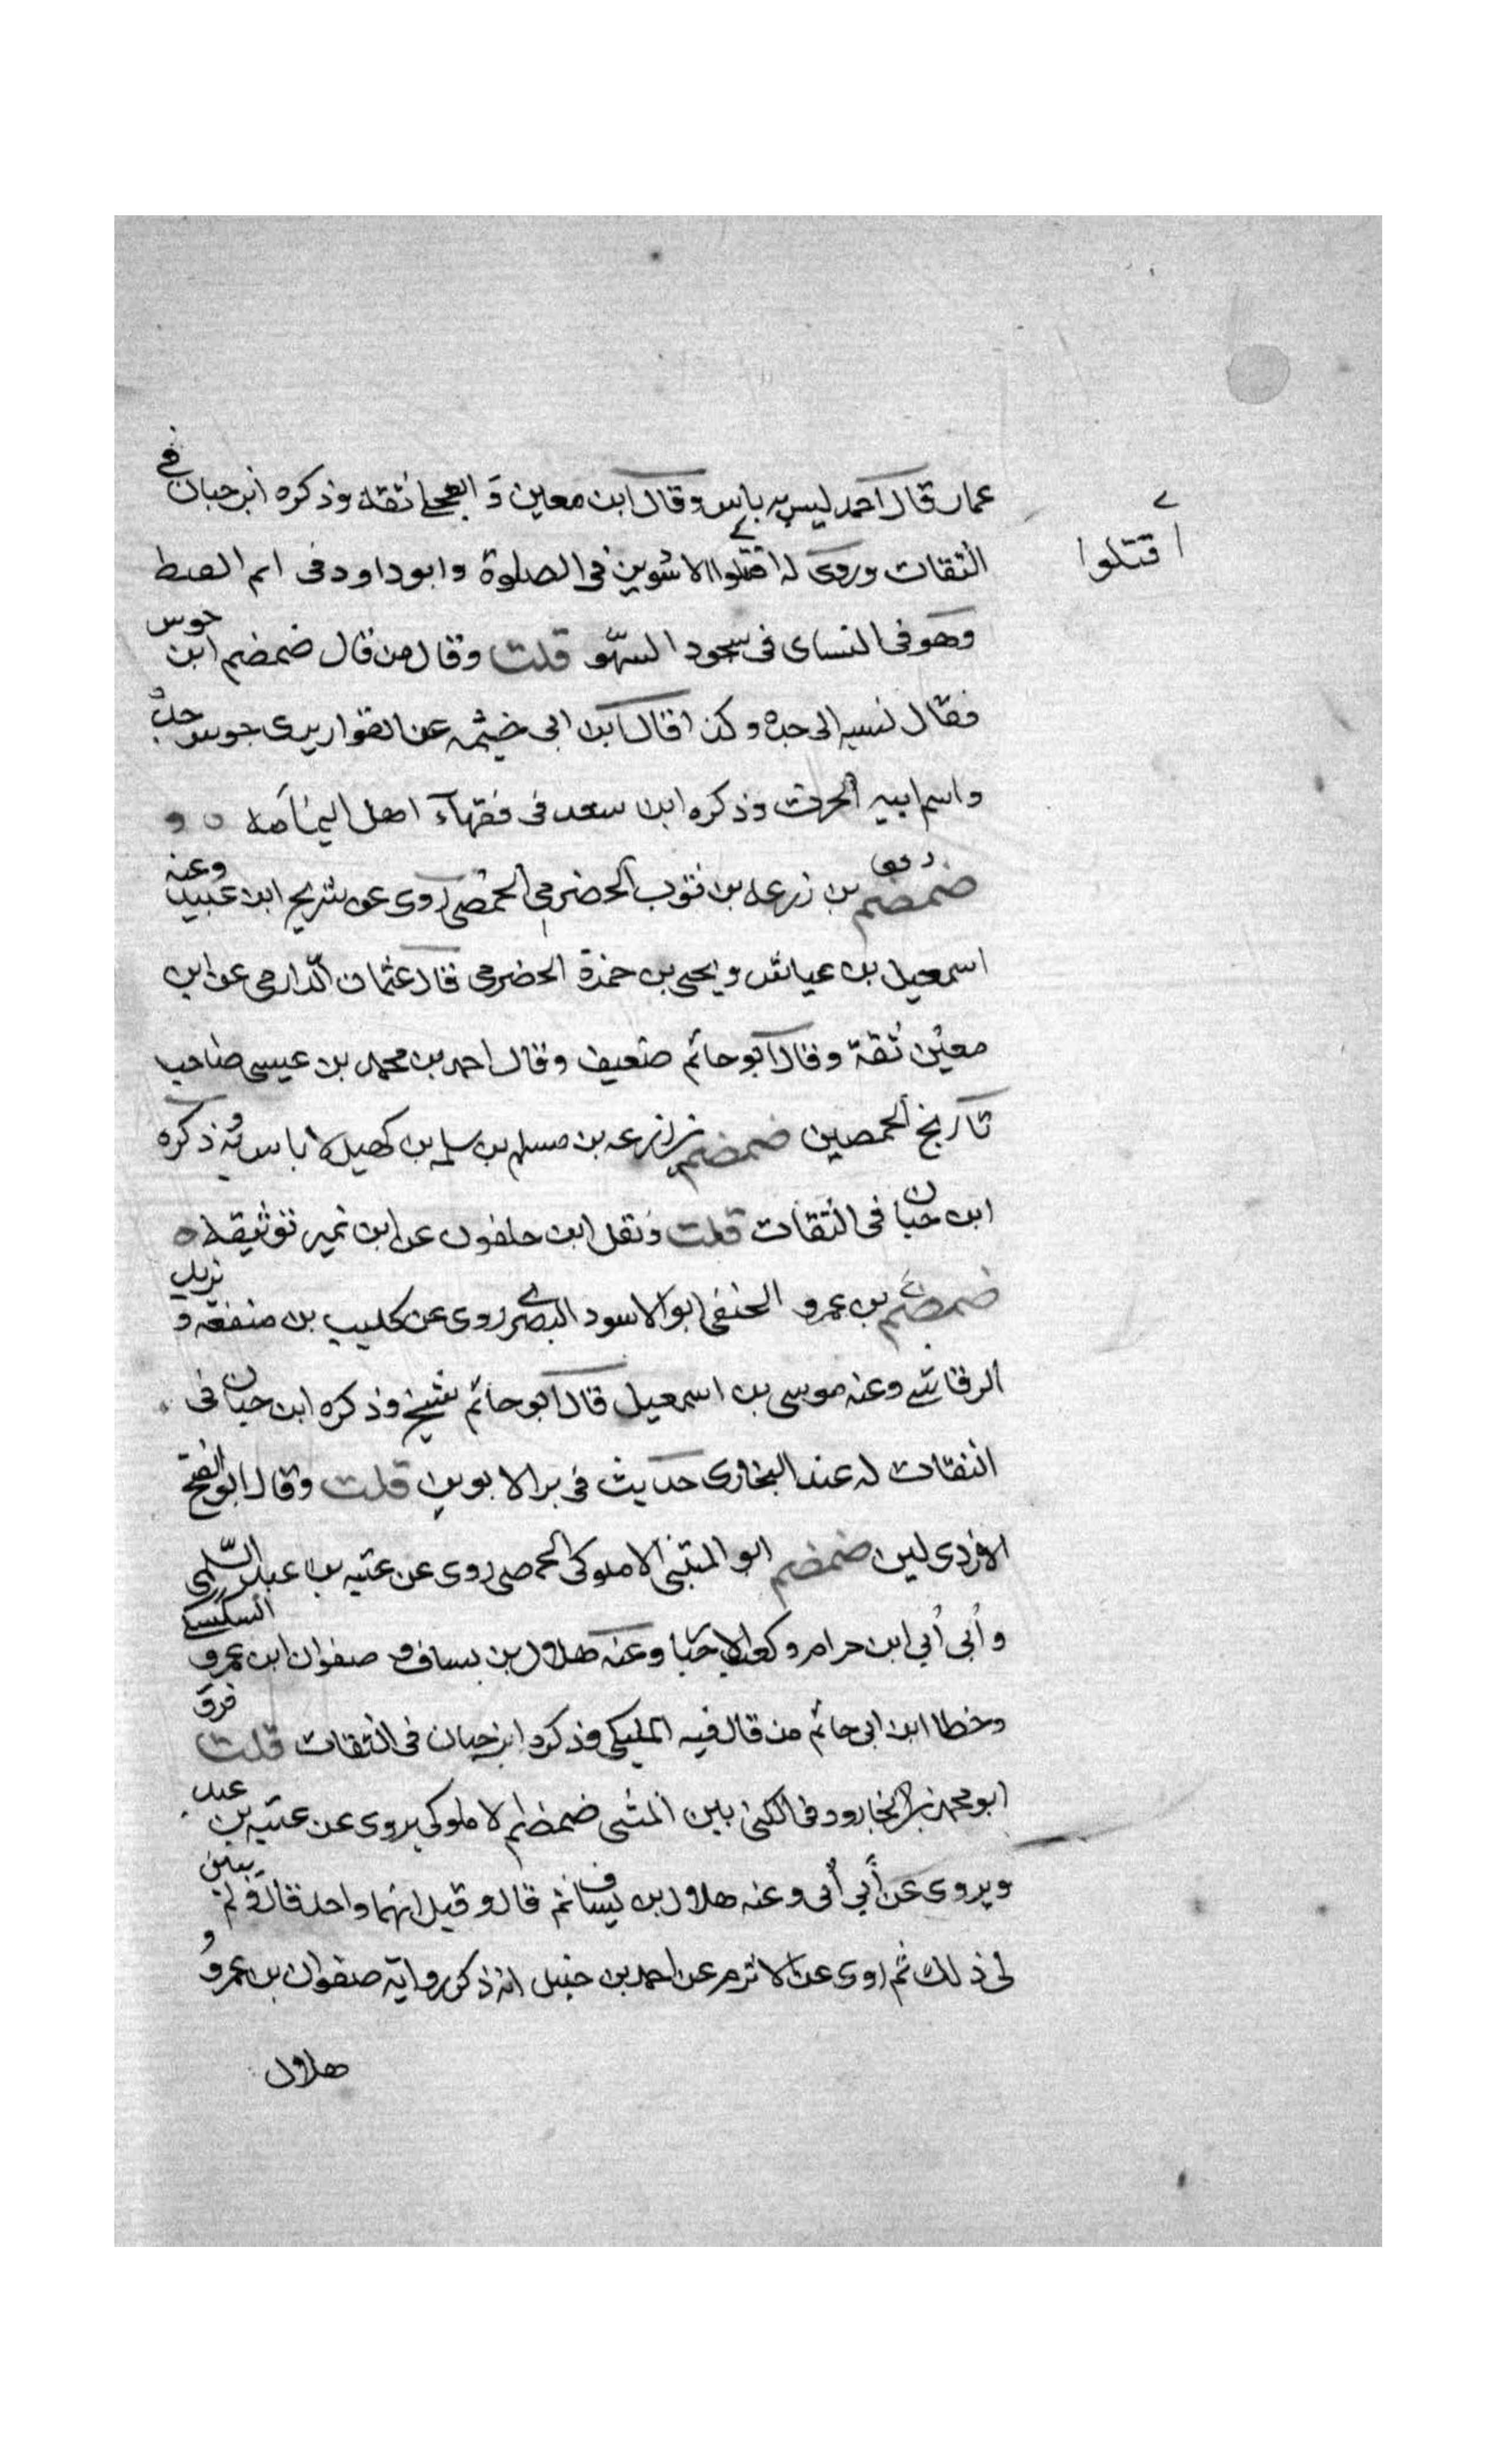 عمار قال احمد ليس به باس وقال ابن معين و العجلي ثقة وذكره ابن حبان في
الثقات وروى له اقتلوا الاسودين في الصلوة وابو داود في
اقتتلوا
وهو في النساى في سجود السهو قلت وقال من قال ضمضم ابن جوس
فقال نسبه الى جده وكذا قال ابن ابى خيثمه عن القواريرى جوس جده
واسم ابيه الحرث وذكره ابن سعد فى فقهآء اهل اليمامه
ضمضم بن زرعه بن ثوب الحضرمي الحمصي روى عن شريح ابن عبيد وعنه
اسمعيل بن عياش و يحيى بن حمزة الحضرمى قال عثمان الدارمى عن ابن
معين ثقة وقال ابو حاتم ضعيف وقال احمد بن محمد بن عيسى صاحب
تاريخ الحمصين ضمضم بن زرعه بن مسلم بن سلمه بن كهيل لا باس به وذكره
ابن حبان فى الثقات قلت ونقل ابن خلفون عن ابن نمير توثيقه
ضمضم بن عمرو الحنفى ابو الاسود البصرى روى عن كليب بن منفعه و يزيد
الرقاشي وعنه موسى بن اسمعيل قال ابو حاتم شيخ وذكره ابن حبان فى
الثقات له عند البخارى حديث فى بر الابوين قلت وقال ابو الفتح
الازدى لين ضمضم ابو المثنى الاملوكى الحمصى روى عن عتبه بن عبد السلمى
و أبى أبي ابن حرام وكعب الاحبار وعنه هلال بن يساف و صفوان ابن عمرو السكسكي
وخطا ابن ابى حاتم من قال فيه المليكى وذكره ابن حبان فى الثقات قلت فرق
ابو محمد بن الجارود فى الكنى بين المثنى ضمضم الاملوكى يروى عن عتبه بن عبد
ويروى عن أبي أبى وعنه هلال بن يساف ثم قال وقيل انهما واحد قال ولم يبين
لى ذلك ثم روى عن الاثرم عن احمد بن حنبل انه ذكر رواية صفوان بن عمرو و
هلال